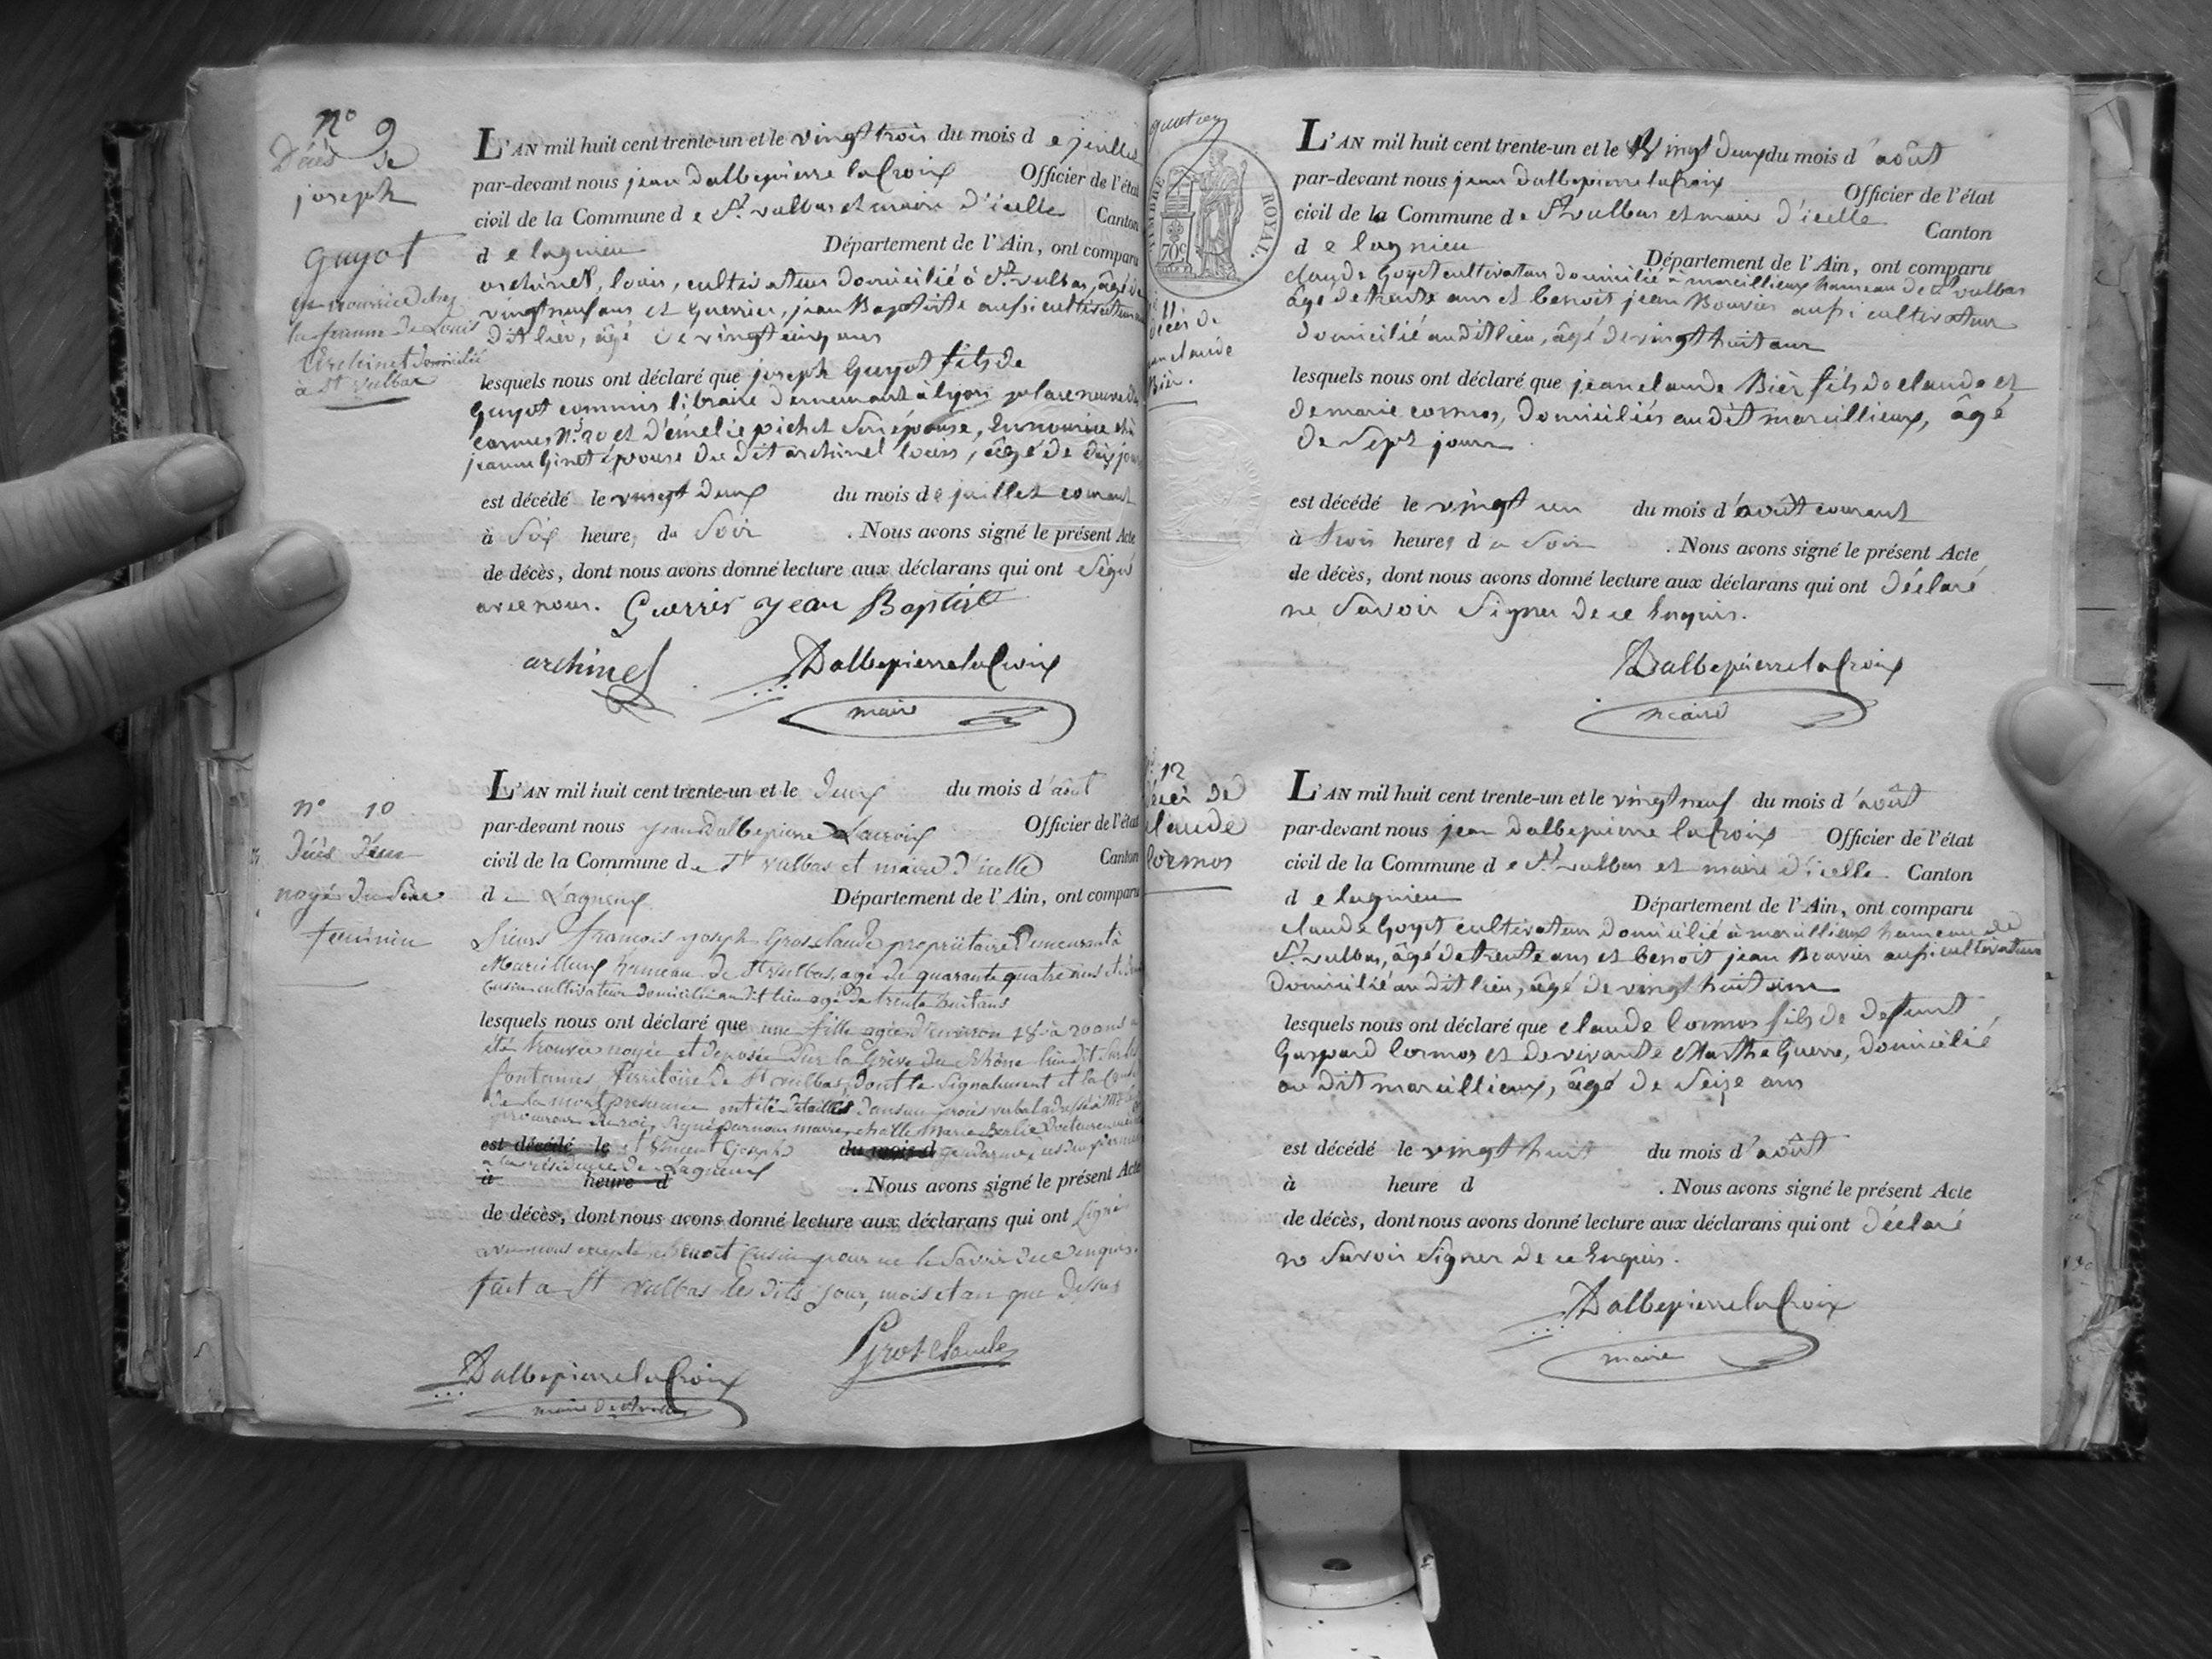 n° 9
Décès de
joseph
guyot
en nourrice chez
la femme de Louis
Archinet domicilié
à St vulbas
L'AN mil huit cent trente-un et le vingt trois du mois d e juillet
par-devant nous jean dalbepierre lacroix Officier de l'état
civil de la Commune d e St vulbas et maire d'icelle Canton
d e lagnieu Département de l'Ain, ont comparu
archinet, louis, cultivateur domicilié à St vulbas, âgé de
vingt neuf ans et Guerrier, jean Baptiste aussi cultivateur au
dit lieu, âgé de vingt cinq ans
lesquels nous ont déclaré que joseph Guyot fils de
Guyot commis libraire demeurant à lyon place neuve des
carmes N° 20 et d'émelie pichet son épouse, en nourrice chés
jeanne Ginet épouse du dit archinet louis, âgé de dix jours
est décédé le vingt deux du mois d e juillet courant
à Six heures du Soir . Nous avons signé le présent Acte
de décès, dont nous avons donné lecture aux déclarans qui ont signé
avec nous. Guerrier jean Baptiste
archinet Dalbepierrelacroix
maire
n° 10
Décès d'un
noyé du sexe
féminin
L'AN mil huit cent trente-un et le deux du mois d'août
par-devant nous jean Dalbepierre Lacroix Officier de l'état
civil de la Commune d e St vulbas et maire d'icelle Canton
d e Lagneux Département de l'Ain, ont comparu
Sieurs francois joseph Grosclaude propriétaire Demeurant à
Marcillieux hameau de St vulbas, agé de quarante quatre ans et
cusin cultivateur domicilié au dit lieu agé de trente huit ans
lesquels nous ont déclaré que une fille agée d'environ 18 à 20 ans a
été trouvée noyée et deposée sur la Grève du Rhône lieu dit sur les
fontaines, territoire de St vulbas, dont le signalement et la
de la mort présumée ont été détaillés dans un procès verbal adressé à Mr le
procureur du roi, signé par nous maire, Marie Berlie Docteur
est décédé le Vincent Joseph du mois d gendarme,
à la résidence de Lagneux
à heure d . Nous avons signé le présent Acte
de décès, dont nous avons donné lecture aux déclarans qui ont signé
avec nous excepté Benoit Cusin pour ne le savoir de ce enquis.
fait a St vulbas les dits jour, mois et an que dessus
Grosclaude
Dalbepierrelacroix
maire de St vulbas
TIMBRE ROYAL.
70c
11
décès de
jean claude
Bièr.
L'AN mil huit cent trente-un et le vingt deux du mois d'août
par-devant nous jean dalbepierre lacroix Officier de l'état
civil de la Commune d e St vulbas et maire d'icelle Canton
d e lagnieu Département de l'Ain, ont comparu
claude Goyet cultivateur domicilié à marcillieux hameau de St vulbas
âgé de trente ans et benoit jean Bouvier aussi cultivateur
domicilié au dit lieu, âgé de vingt huit ans
lesquels nous ont déclaré que jean claude Bièr fils de claude et
de marie cormos, domiciliés au dit marcillieux, âgé
de Sept jours
est décédé le vingt un du mois d'août courant
à trois heures d u Soir . Nous avons signé le présent Acte
de décès, dont nous avons donné lecture aux déclarans qui ont déclaré
ne Savoir Signer de ce Enquis.
Dalbepierrelacroix
maire
12
Décès de
Claude
Cormos
L'AN mil huit cent trente-un et le vingt neuf du mois d'août
par-devant nous jean dalbepierre lacroix Officier de l'état
civil de la Commune d e St vulbas et maire d'icelle Canton
d e lagnieu Département de l'Ain, ont comparu
claude Goyet cultivateur domicilié à marcillieux hameau de
St vulbas, âgé de trente ans et benoit jean Bouvier aussi cultivateur
domicilié au dit lieu, âgé de vingt huit ans
lesquels nous ont déclaré que claude Cormos fils de defunt
Gaspard Cormos et de vivante Marthe Guerre, domicilié
au dit marcillieux, âgé de Seize ans
est décédé le vingt huit du mois d'août
à heure d . Nous avons signé le présent Acte
de décès, dont nous avons donné lecture aux déclarans qui ont déclaré
ne Savoir Signer de ce Enquis.
Dalbepierrelacroix
maire